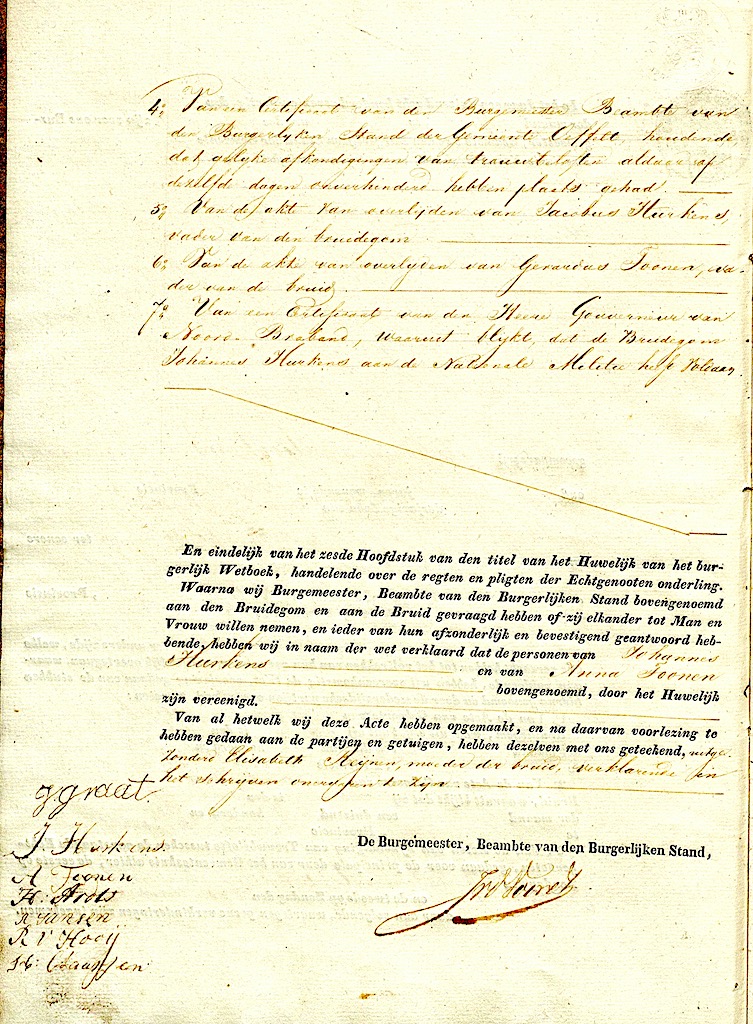 4º Van een Certificaat van den Burgemeester Beambte van
den Burgerlyken Stand der Gemeente Oeffelt, houdende,
dat gelyke afkondigingen van trouwbeloften aldaar op
dezelfde dagen onverhinderd hebben plaats gehad.
5º Van de akte van overlyden van Jacobus Hurkens,
vader van den bruidegom.
6º Van de akte van overlyden van Gerardus Toonen, va-
der van de bruid.
7º Van een Certificaat van den Heere Gouverneur van
Noord Braband, waaruit blykt, dat de Bruidegom
Johannes Hurkens aan de Nationale Militie heeft voldaan
En eindelijk van het zesde Hoofdstuk van den titel van het Huwelijk van het bur-
gerlijk Wetboek, handelende over de regten en pligten der Echtgenooten onderling.
Waarna wij Burgemeester, Beambte van den Burgerlijken Stand bovengenoemd
aan den Bruidegom en aan de Bruid gevraagd hebben of zij elkander tot Man en
Vrouw willen nemen, en ieder van hun afzonderlijk en bevestigend geantwoord heb-
bende, hebben wij in naam der wet verklaard dat de personen van Johannes
Hurkens en van Anna Toonen
bovengenoemd, door het Huwelijk
zijn vereenigd.
Van al hetwelk wij deze Acte hebben opgemaakt, en na daarvan voorlezing te
hebben gedaan aan de partijen en getuigen, hebben dezelven met ons geteekend, uitge-
zonderd Elisabeth Meijnen, moeder der bruid, verklarende in
het schrijven onervaren te zijn
g.graat.
J. Hurkens
De Burgemeester, Beambte van den Burgerlijken Stand,
A Toonen
H: Arots
R Jansen
P. v Hooij
H: Claassen